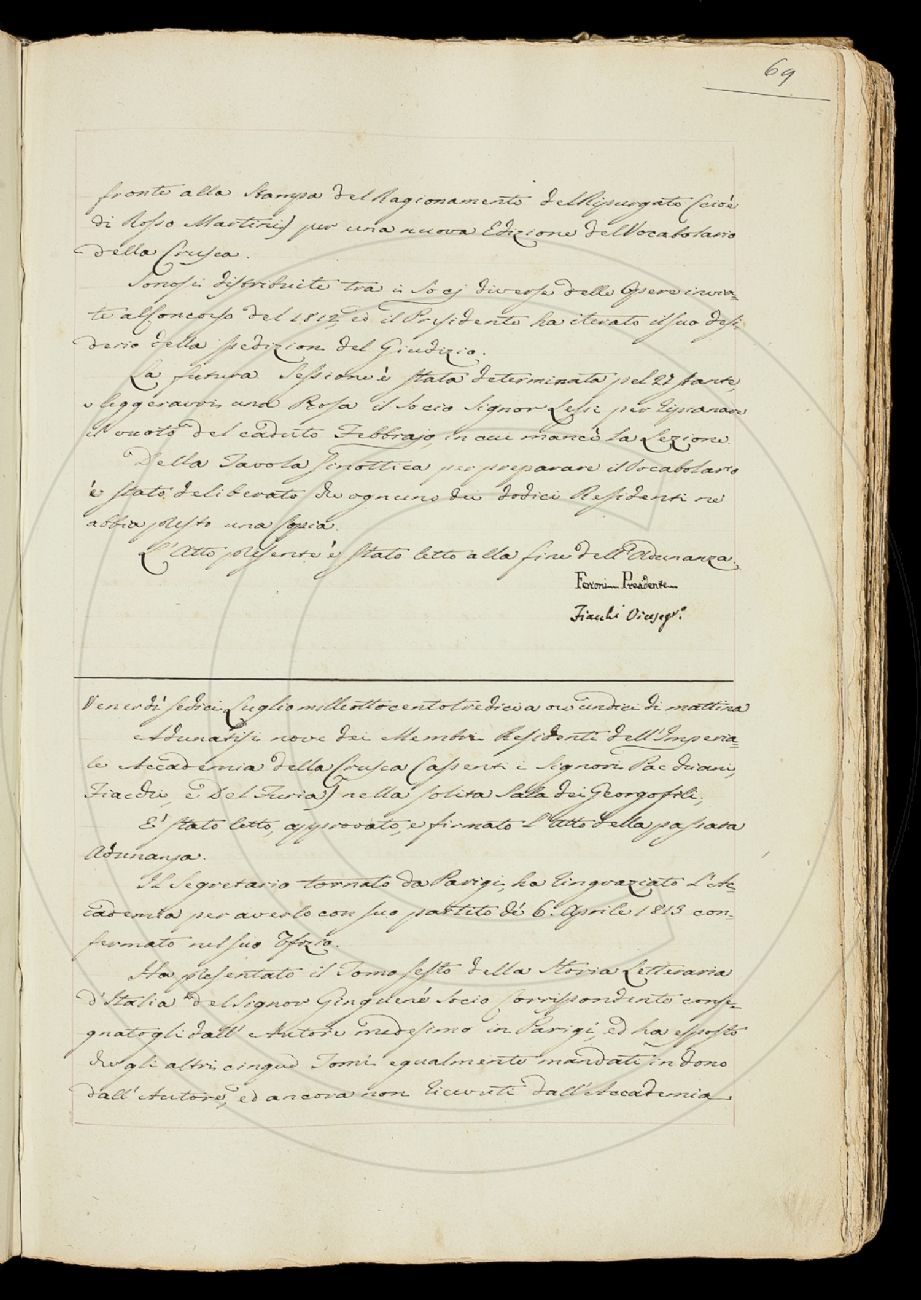 69
fronte alla Stampa del Ragionamento del Ripurgato (cioè
di Rosso Martini) per una nuova Edizione del Vocabolario
della Crusca.
Sonosi distribuite tra i Socj diverse delle Opere invia-
te al Concorso del 1812, ed il Presidente ha iterato il suo desi-
derio della spedizion del Giudizio.
La futura Sessione è stata determinata pel 27 stante,
e leggeravvi una Prosa il Socio Signor Lessi per ripianare
il vuoto del caduto Febbrajo, in cui mancò la Lezione.
Della Tavola Sinottica per preparare il Vocabolario
è stato deliberato che ognuno dei dodici Residenti ne
abbia presto una Copia.
L'Atto presente è stato letto alla fine dell'Adunanza.
Ferroni Presidente
Fiacchi Vicesegr.°
Venerdì sedici Luglio milleottocentotredici a ore undici di mattina
Adunatisi nove dei Membri Residenti dell'Imperia-
le Accademia della Crusca (assenti i Signori
Fiacchi, e Del Furia) nella solita Sala dei Georgofili,
E' stato letto, approvato, e firmato l'Atto della passata
Adunanza.
Il Segretario tornato da Parigi, ha ringraziato l'Ac-
cademia per averlo con suo partito de' 6. Aprile 1813 con-
fermato nel suo Ufizio.
Ha presentato il Tomo sesto della Storia Letteraria
d'Italia del Signor Ginguené Socio Corrispondente conse-
gnatogli dall'Autore medesimo in Parigi, ed ha esposto
che gli altri cinque Tomi egualmente mandati in dono
dall'Autore, ed ancora non ricevuti dall'Accademia